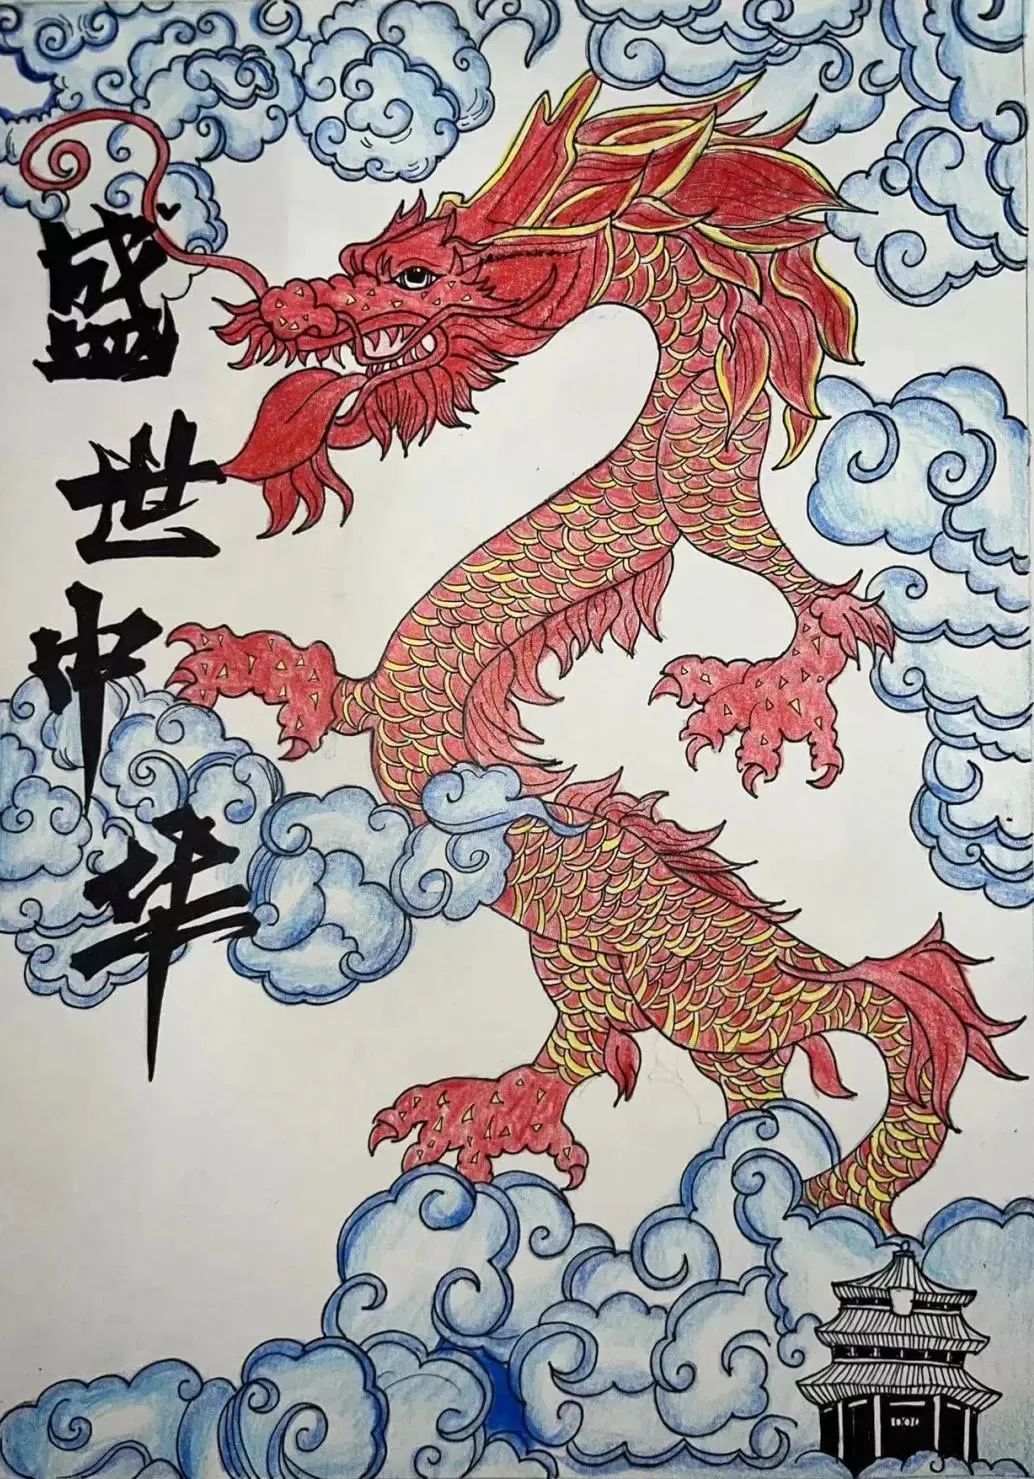 盛世中华